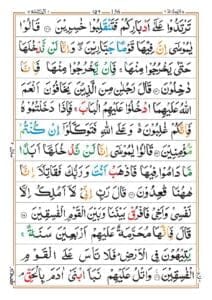 تَرْتَدُّوْا عَلٰٓى اَدْبَارِكُمْ فَتَنْقَلِبُوْا خٰسِرِيْنَ ۝ قَالُوْا
يٰمُوْسٰٓى اِنَّ فِيْهَا قَوْمًا جَبَّارِيْنَ ۖ وَاِنَّا لَنْ نَّدْخُلَهَا
حَتّٰى يَخْرُجُوْا مِنْهَا ۚ فَاِنْ يَّخْرُجُوْا مِنْهَا فَاِنَّا
دٰخِلُوْنَ ۝ قَالَ رَجُلٰنِ مِنَ الَّذِيْنَ يَخَافُوْنَ اَنْعَمَ
اللّٰهُ عَلَيْهِمَا ادْخُلُوْا عَلَيْهِمُ الْبَابَ ۚ فَاِذَا دَخَلْتُمُوْهُ
فَاِنَّكُمْ غٰلِبُوْنَ ۚ وَعَلَى اللّٰهِ فَتَوَكَّلُوْٓا اِنْ كُنْتُمْ
مُّؤْمِنِيْنَ ۝ قَالُوْا يٰمُوْسٰٓى اِنَّا لَنْ نَّدْخُلَهَآ اَبَدًا
مَّا دَامُوْا فِيْهَا فَاذْهَبْ اَنْتَ وَرَبُّكَ فَقَاتِلَآ اِنَّا
هٰهُنَا قٰعِدُوْنَ ۝ قَالَ رَبِّ اِنِّيْ لَآ اَمْلِكُ اِلَّا
نَفْسِيْ وَاَخِيْ فَافْرُقْ بَيْنَنَا وَبَيْنَ الْقَوْمِ الْفٰسِقِيْنَ ۝
قَالَ فَاِنَّهَا مُحَرَّمَةٌ عَلَيْهِمْ اَرْبَعِيْنَ سَنَةً ۚ
يَتِيْهُوْنَ فِي الْاَرْضِ ۚ فَلَا تَاْسَ عَلَى الْقَوْمِ
الْفٰسِقِيْنَ ۝ وَاتْلُ عَلَيْهِمْ نَبَاَ ابْنَيْ اٰدَمَ بِالْحَقِّ ۘ